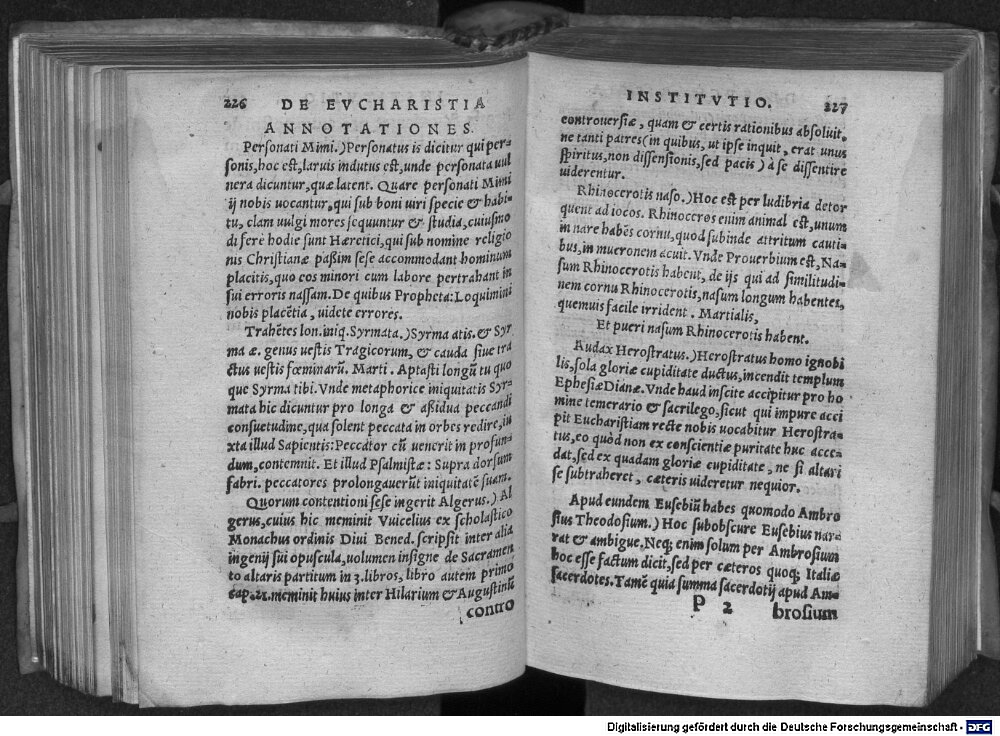 226 DE EVCHARISTIA
ANNOTATIONES.
Personati Mimi.) Personatus is dicitur qui per-
sonis, hoc est, laruis indutus est, unde personata uul
nera dicuntur, quæ latent. Quare personati Mimi
ij nobis uocantur, qui sub boni uiri specie & habi-
tu, clam uulgi mores sequuntur & studia, cuiusmo
di fere hodie sunt Hæretici, qui sub nomine religio
nis Christianæ paßim sese accommodant hominum
placitis, quo eos minori cum labore pertrahant in
sui erroris nassam. De quibus Propheta: Loquimini
nobis placẽtia, uidete errores.
Trahẽtes lon. iniq. Syrmata.) Syrma atis. & Syr
ma æ. genus uestis Tragicorum, & cauda siue tra
ctus uestis fœminarũ. Marti. Aptasti longũ tu quo
que Syrma tibi. Vnde metaphorice iniquitatis Syr-
mata hic dicuntur pro longa & aßidua peccandi
consuetudine, qua solent peccata in orbes redire, iu
xta illud Sapientis: Peccator cũ uenerit in profun-
dum, contemnit. Et illud Psalmistæ: Supra dorsum
fabri. peccatores prolongauerũt iniquitatẽ suam.
Quorum contentioni sese ingerit Algerus.) Al
gerus, cuius hic meminit Vuicelius ex scholastico
Monachus ordinis Diui Bened. scripsit inter alia
ingenij sui opuscula, uolumen insigne de Sacramen
to altaris partitum in 3. libros, libro autem primo
cap. 21. meminit huius inter Hilarium & Augustinũ
contro
INSTITVTIO. 227
controuersiæ, quam & certis rationibus absoluit,
ne tanti patres (in quibus, ut ipse inquit, erat unus
spiritus, non dissensionis, sed pacis) à se dissentire
uiderentur.
Rhinocerotis naso.) Hoc est per ludibria detor
quent ad iocos. Rhinoceros enim animal est, unum
in nare habẽs cornu, quod subinde attritum cauti-
bus, in mucronem acuit. Vnde Prouerbium est, Na-
sum Rhinocerotis habent, de ijs qui ad similitudi-
nem cornu Rhinocerotis, nasum longum habentes,
quemuis facile irrident. Martialis,
Et pueri nasum Rhinocerotis habent.
Audax Herostratus.) Herostratus homo ignobi
lis, sola gloriæ cupiditate ductus, incendit templum
Ephesiæ Dianæ. Vnde haud inscite accipitur pro ho
mine temerario & sacrilego, sicut qui impure acci
pit Eucharistiam recte nobis uocabitur Herostra-
tus, eo quòd non ex conscientiæ puritate huc acce-
dat, sed ex quadam gloriæ cupiditate, ne si altari
se subtraheret, cæteris uideretur nequior.
Apud eundem Eusebiũ habes quomodo Ambro
sius Theodosium.) Hoc subobscure Eusebius nar-
rat & ambigue. Neq; enim solum per Ambrosium
hoc esse factum dicit, sed per cæteros quoq; Italiæ
sacerdotes. Tamẽ quia summa sacerdotij apud Am-
P 2 brosium
Digitalisierung gefördert durch die Deutsche Forschungsgemeinschaft - DFG